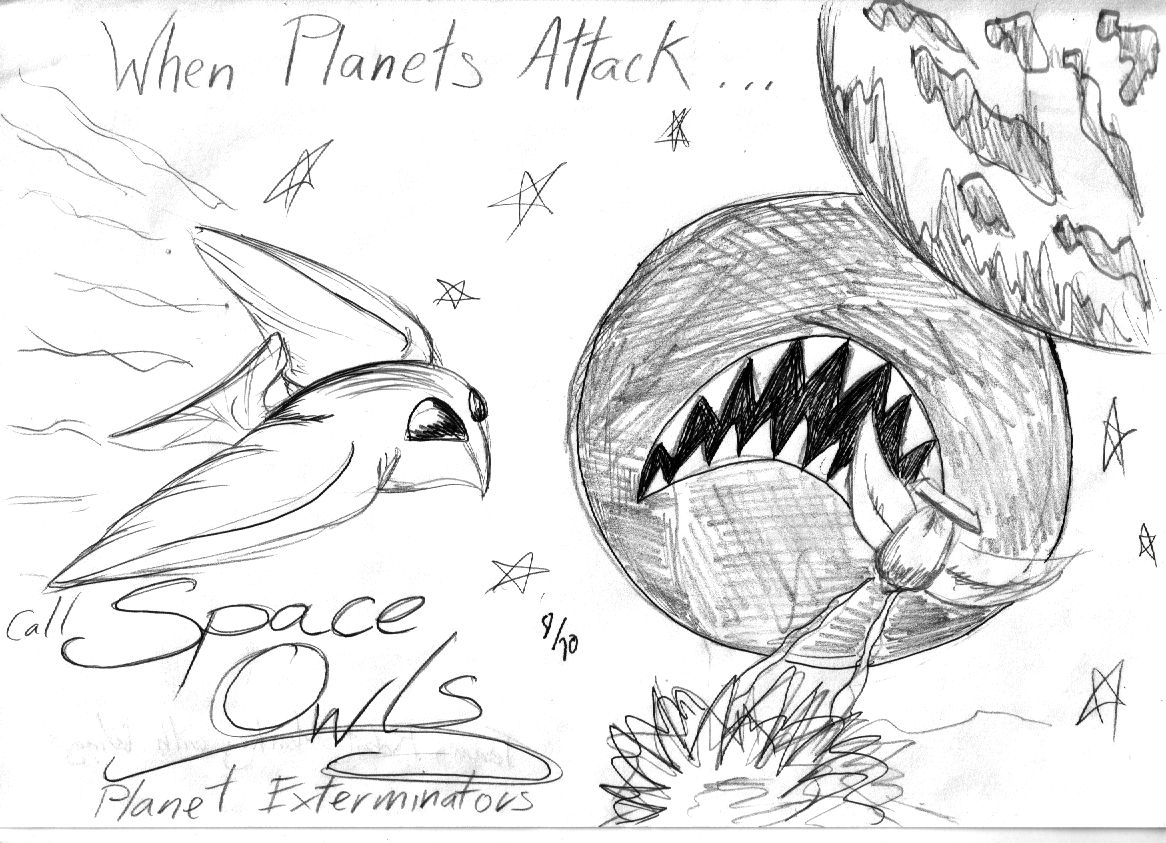 When Planets Attack...
Call Space
Owls
Planet Exterminators